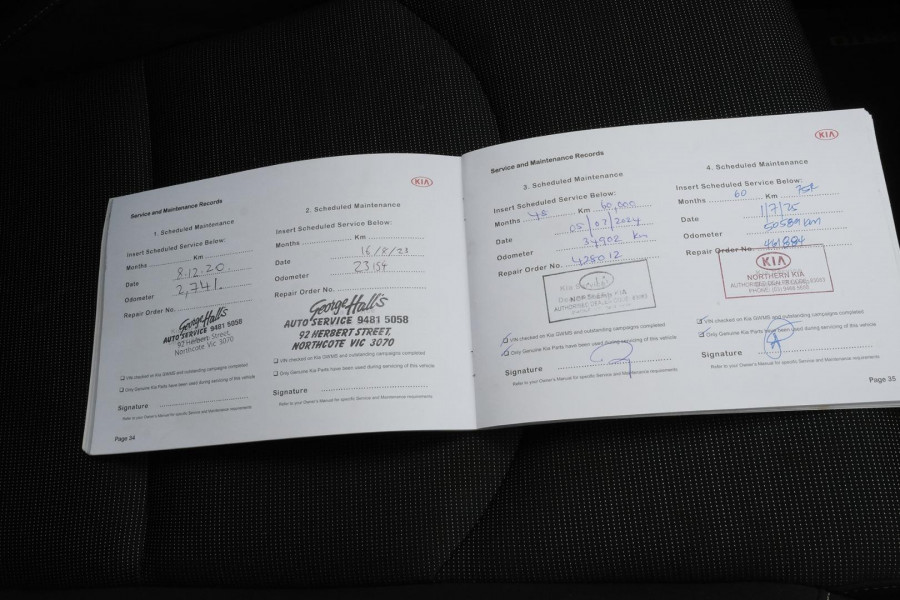 Service and Maintenance Records
KIA
1. Scheduled Maintenance
Insert Scheduled Service Below:
Months Km
Date 8.12.20
Odometer 2,741
Repair Order No.
George Hall's
AUTO SERVICE 9481 5058
92 Herbert Street,
Northcote Vic 3070
VIN checked on Kia GWMS and outstanding campaigns completed
Only Genuine Kia Parts have been used during servicing of this vehicle
Signature
Refer to your Owner's Manual for specific Service and Maintenance requirements.
Page 34
2. Scheduled Maintenance
Insert Scheduled Service Below:
Months Km
Date
Odometer
Repair Order No.
George Hall's
AUTO SERVICE 9481 5058
92 HERBERT STREET,
NORTHCOTE VIC 3070
VIN checked on Kia GWMS and outstanding campaigns completed
Only Genuine Kia Parts have been used during servicing of this vehicle
Signature
Refer to your Owner's Manual for specific Service and Maintenance requirements.
Service and Maintenance Records
KIA
3. Scheduled Maintenance
Insert Scheduled Service Below:
Months Km 60,000
Date 05/07/2024
Odometer 34902 km
Repair Order No. 428012
NORTHERN KIA
VIN checked on Kia GWMS and outstanding campaigns completed
Only Genuine Kia Parts have been used during servicing of this vehicle
Signature
Refer to your Owner's Manual for specific Service and Maintenance requirements.
4. Scheduled Maintenance
Insert Scheduled Service Below:
Months 60 Km 75k
Date 1/7/25
Odometer 50589km
Repair Order No.
KIA
NORTHERN KIA
VIN checked on Kia GWMS and outstanding campaigns completed
Only Genuine Kia Parts have been used during servicing of this vehicle
Signature
Refer to your Owner's Manual for specific Service and Maintenance requirements.
Page 35